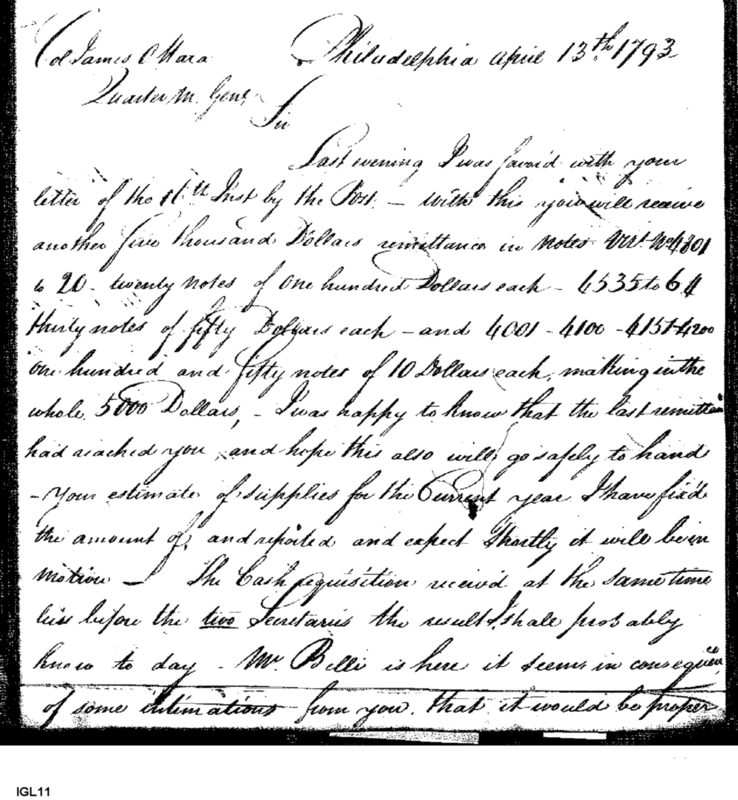 Col James O Hara
Philadelphia April 13th 1793
Quarter M. Genl
Sir
Last evening I was favoid with your
letter of the Inst by the Post. – with this you will receive
another five thousand Dollars remittance in notes Vizt No 4801
to 20 – twenty notes of one hundred Dollars each – 4535 to 64
thirty notes of fifty Dollars each – and 4001 – 4100 – 4151–4200
one hundred and fifty notes of 10 Dollars each, making in the
whole 5000 Dollars, – I was happy to know that the last remittan
had reached you, and hope this also will go safely to hand
– Your estimate of supplies for the Current year I have fix'd
the amount of, and reported and expect shortly it will be in
motion – The Cash requisition receiv'd at the same time
lies before the two Secretaries the result I shall probably
know to day – Mr Belli is here it seems in consequen
of some intimations from you, that it would be proper
IGL11